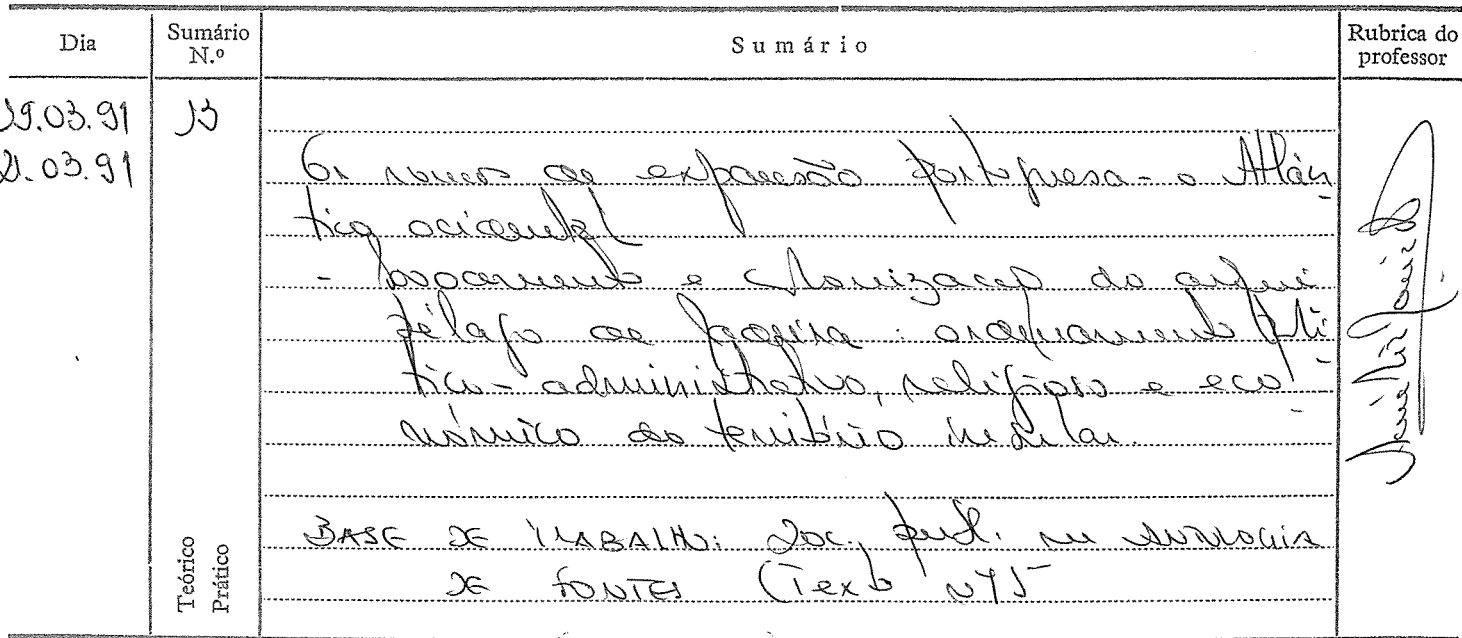 Dia
Sumário N.º
Sumário
Rubrica do professor
19.03.91
13
21.03.91
Os rumos da expansão portuguesa - o Atlân-
tico ocidental
- Povoamento e colonização do arqui-
pélago da Madeira: ordenamento polí-
tico-administrativo, religioso e eco-
nómico do território insular.
BASE DE TRABALHO: Doc. publ. in ANTOLOGIA
DE FONTES (Texto
Teórico
Prático